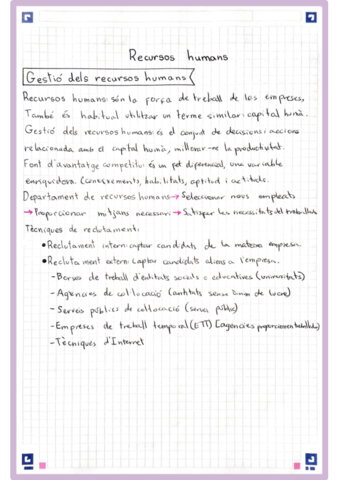 Recursos humans
Gestió dels recursos humans
Recursos humans: són la força de treball de les empreses,
També és habitual utilitzar un terme similar: capital humà.
Gestió dels recursos humans: és el conjunt de decisions i accions
relacionada amb el capital humà, millorar-ne la productivitat.
Font d'avantatge competitiu: és un fet diferencial, una variable
enriquidora. (coneixements, habilitats, aptitud i actitud).
Departament de recursos humans → Seleccionar nous empleats
→ Proporcionar mitjans necessaris → Satisfer les necessitats del treballador
Tècniques de reclutament:
• Reclutament intern: captar candidats de la mateixa empresa.
• Reclutament extern: captar candidats aliens a l'empresa.
- Borsa de treball d'entitats socials o educatives (universitats)
- Agències de col·locació (entitats sense ànim de lucre)
- Serveis públics de col·locació (servei públic)
- Empreses de treball temporal (ETT) [agències proporcionen treballador]
- Tècniques d'Internet